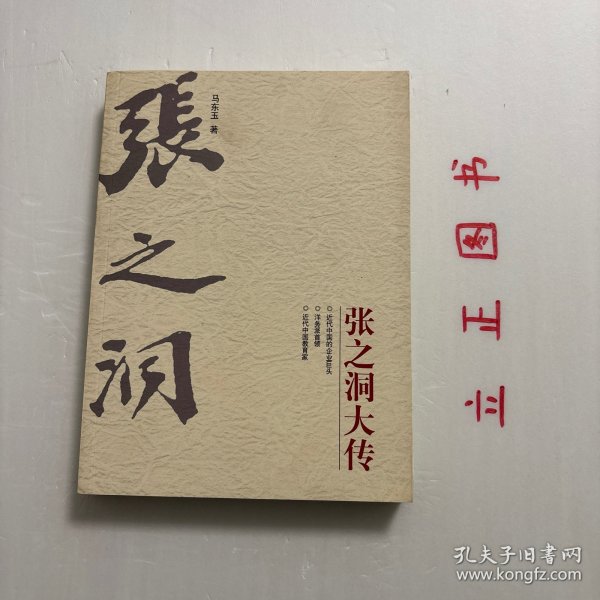 張之洞
马东玉 著
张之洞大传
○近代中国的企业巨头
○洋务派首领
○近代中国教育家
立正图书
孔夫子旧书网
www.kongfz.com